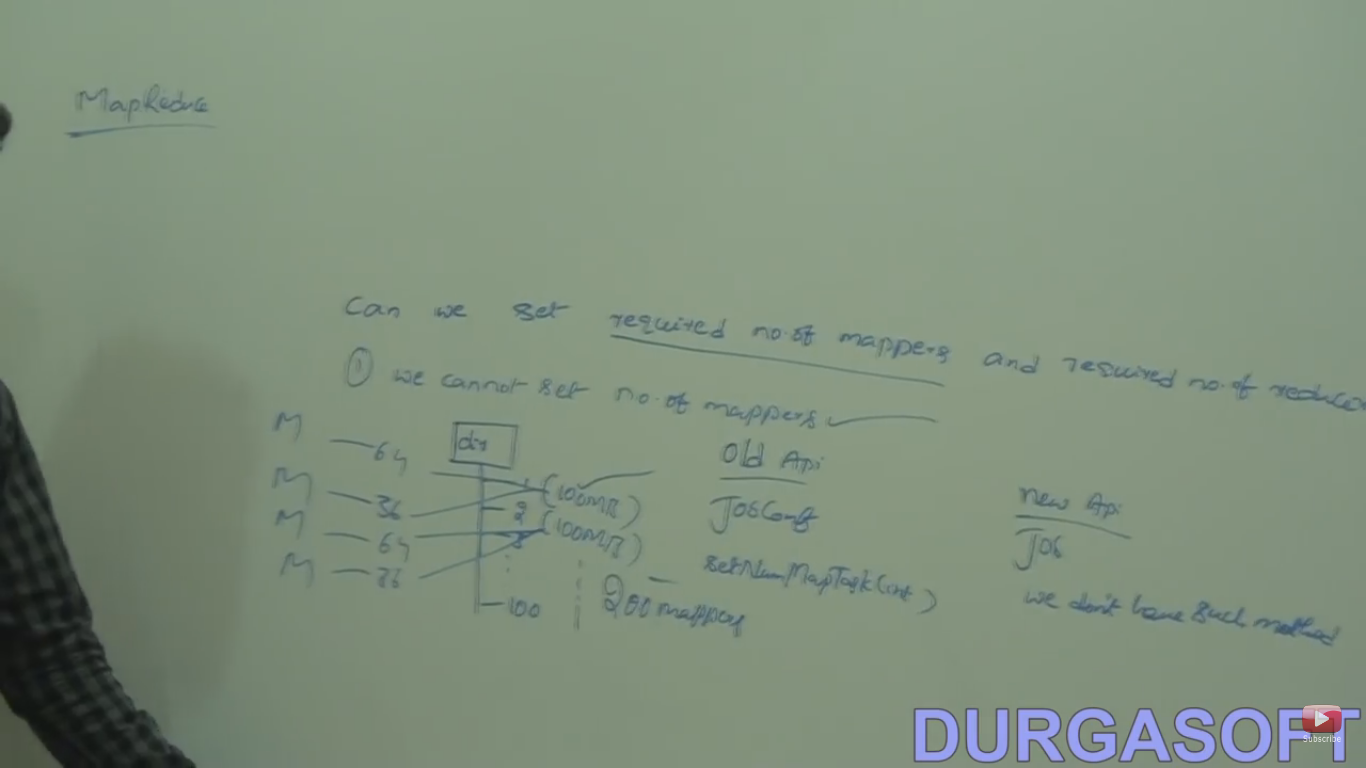 MapReduce
Can we set required no.of mappers and required no.of reducer
① we cannot set no.of mappers
M — 64
M — 36
M — 64
M — 36
dir
1 (100MB)
2 (100MB)
3
100
200 mappers
Old Api
JobConf
setNumMapTask(int)
new Api
Job
we don't have such method
DURGASOFT
Subscribe